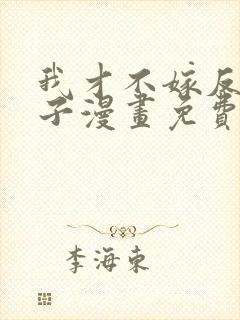 我才不嫁反
子漫畫免費
李海東